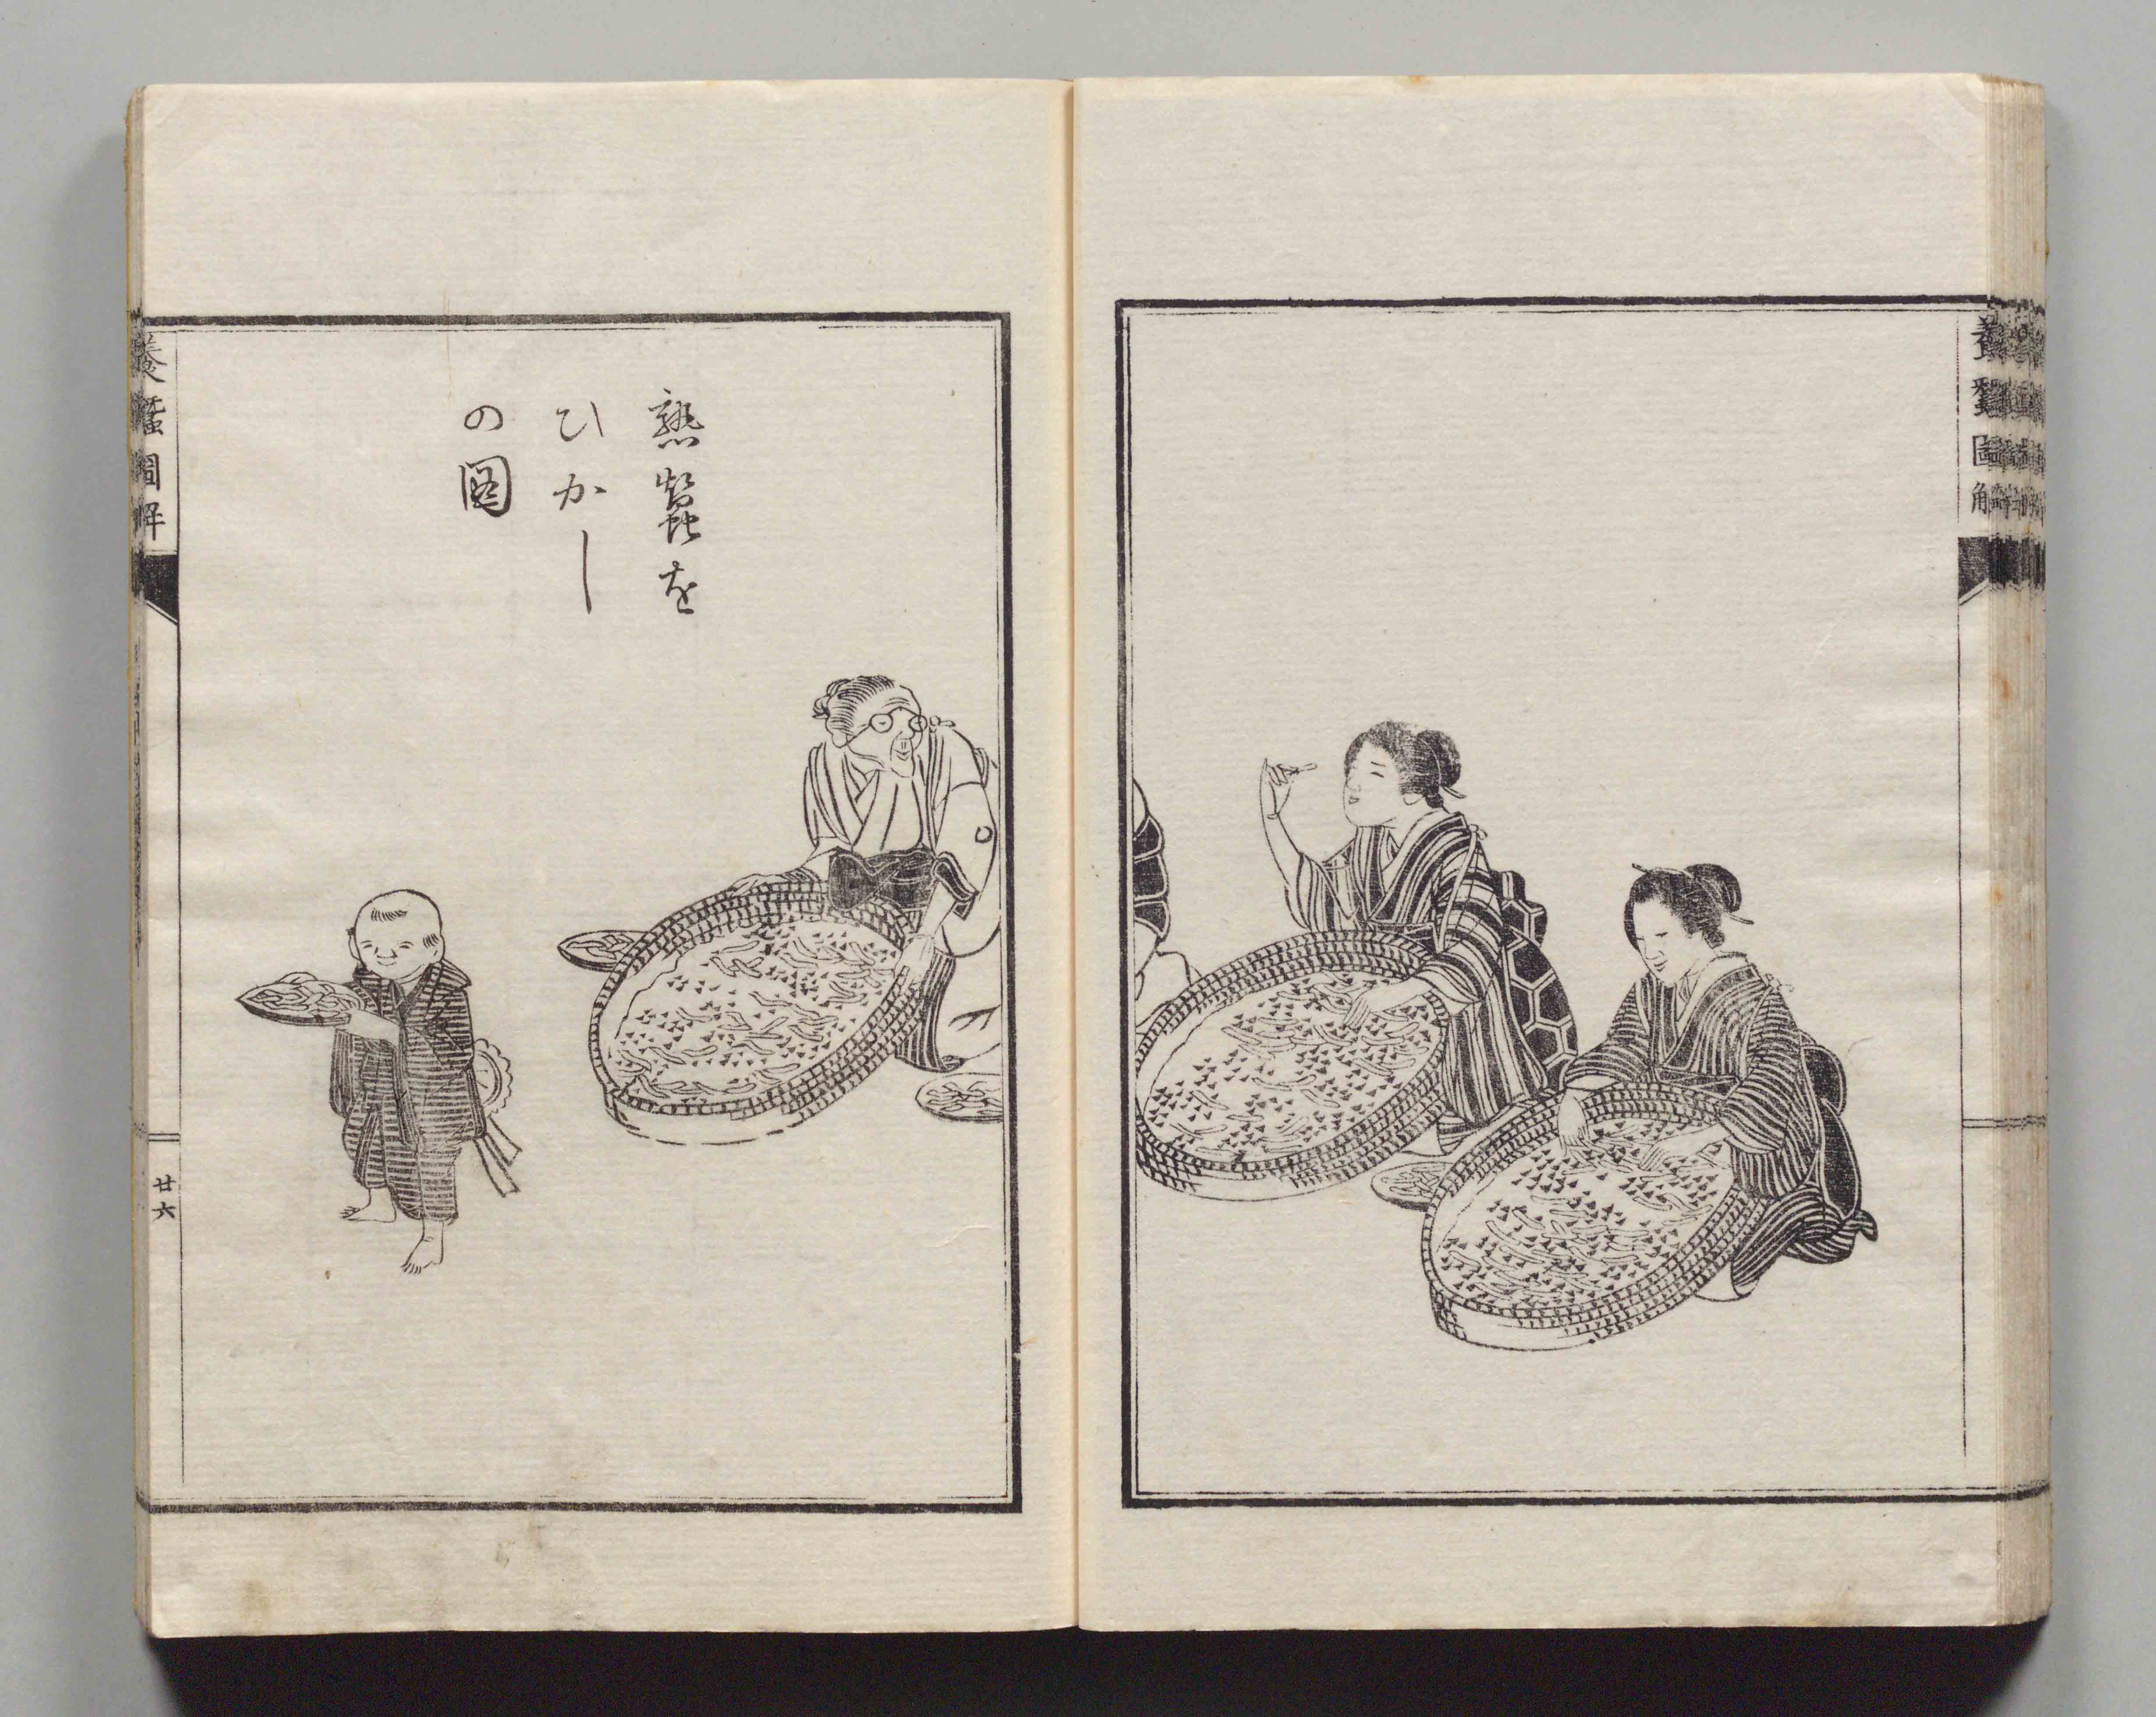 養蠶圖解
熟蚕を
ひかし
の図
養蚕圖解
廿六